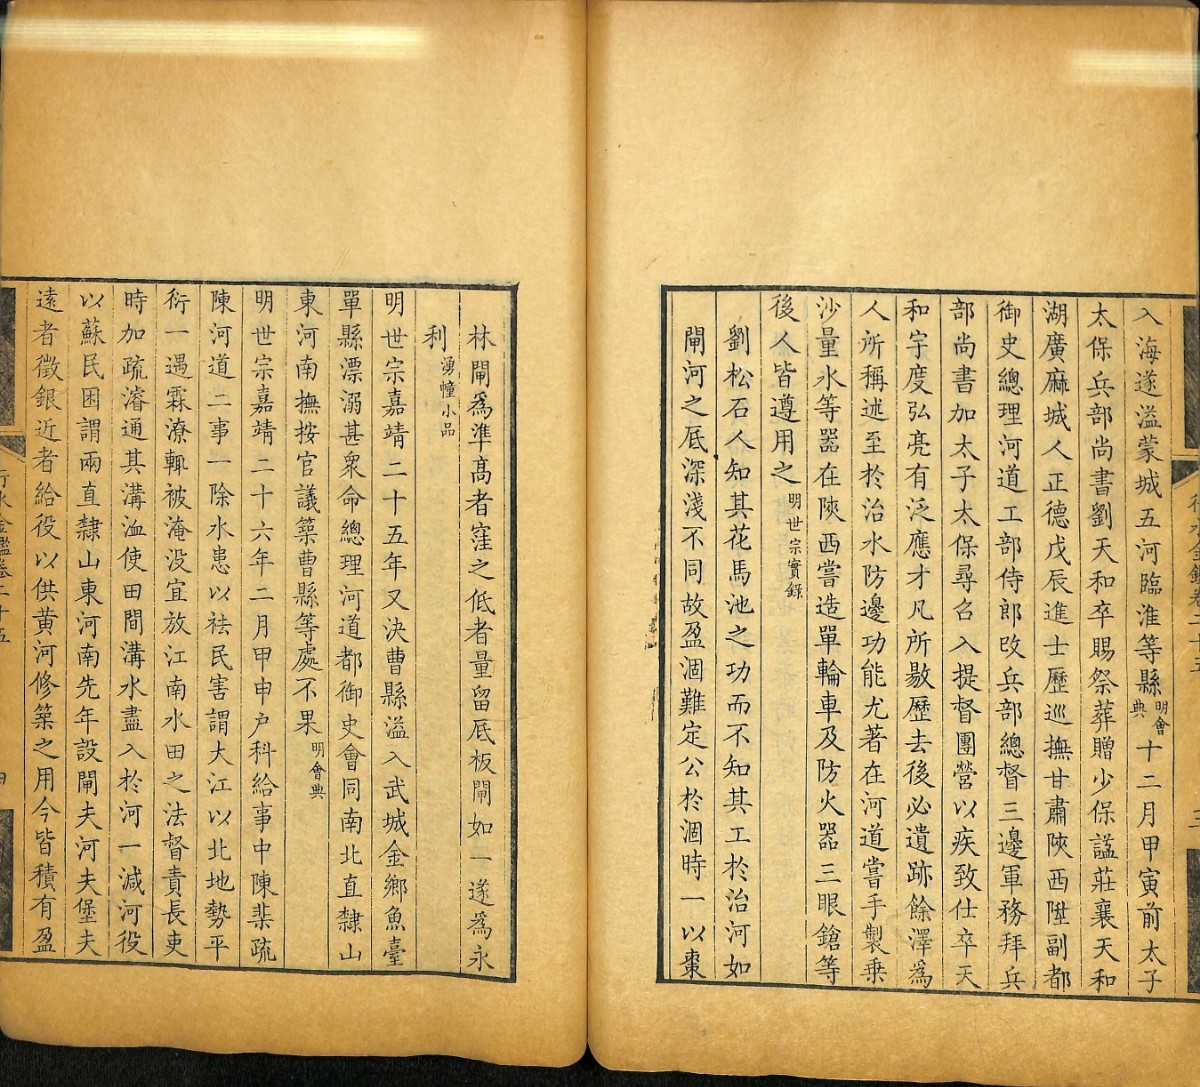 入海遂溢蒙城五河臨淮等縣明會典十二月甲寅前太子
太保兵部尚書劉天和卒賜祭葬贈少保諡莊襄天和
湖廣麻城人正德戊辰進士歷巡撫甘肅陝西陞副都
御史總理河道工部侍郎改兵部總督三邊軍務拜兵
部尚書加太子太保尋召入提督團營以疾致仕卒天
和字度弘亮有泛應才凡所敭歷去後必遺跡餘澤爲
人所稱述至於治水防邊功能尤著在河道嘗手製乗
沙量水等器在陝西嘗造單輪車及防火器三眼鎗等
後人皆遵用之明世宗實錄
劉松石人知其花馬池之功而不知其工於治河如
閘河之厎深淺不同故盈涸難定公於涸時一以棗
林閘爲準高者窪之低者量留厎板閘如一遂爲永
利湧幢小品
明世宗嘉靖二十五年又決曹縣溢入武城金鄉魚臺
單縣漂溺甚衆命總理河道都御史會同南北直隸山
東河南撫按官議築曹縣等處不果明會典
明世宗嘉靖二十六年二月甲申户科給事中陳棐疏
陳河道二事一除水患以袪民害謂大江以北地勢平
衍一遇霖潦輒被淹没宜放江南水田之法督責長吏
時加疏濬通其溝洫使田間溝水盡入於河一減河役
以蘇民困謂兩直隸山東河南先年設閘夫河夫堡夫
遠者徵銀近者給役以供黄河修築之用今皆積有盈
行水金鑑卷二十五